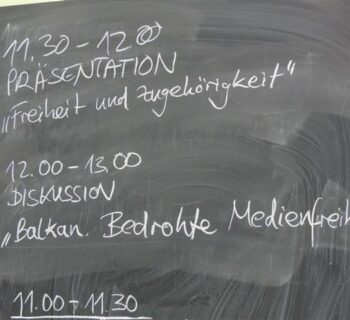 11.30 - 12.00
PRÄSENTATION
„Freiheit und Zugehörigkeit"
12.00 - 13.00
DISKUSSION
„Balkan. Bedrohte Medienfreih
11.00 - 11.30